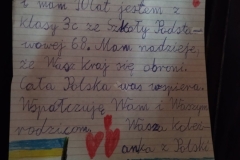 i mam 10lat jestem z
klasy 3c ze Szkoły Podsta-
wowej 68. Mam nadzieję,
że Wasz kraj się obroni.
Cała Polska was wspiera.
Współczuję Wam i Waszym
rodzicom. Wasza koleż-
anka z Polski